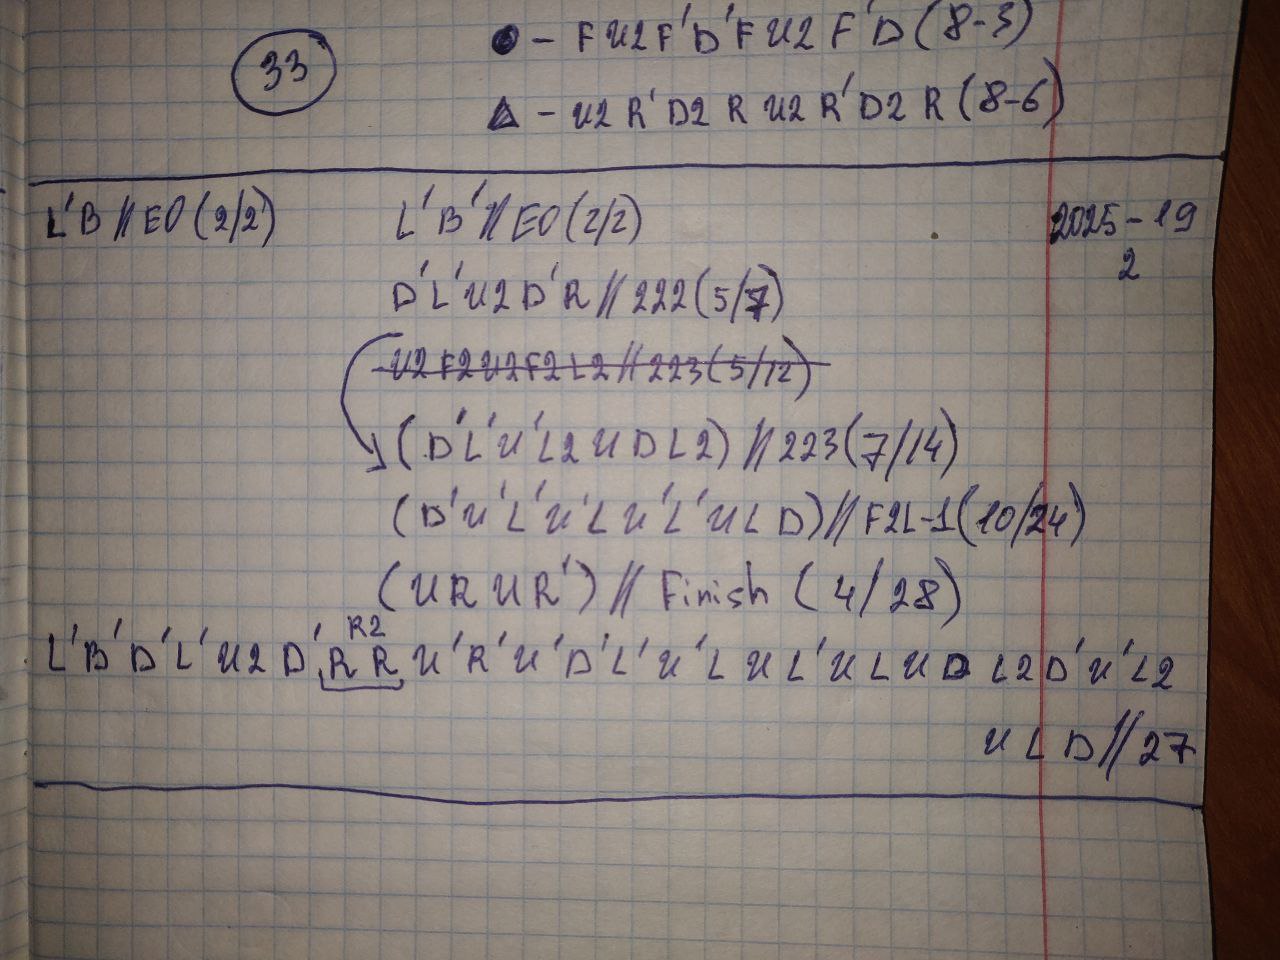 33
● - F U2 F' D' F U2 F' D (8-3)
▲ - U2 R' D2 R U2 R' D2 R (8-6)
L'B // EO (2/2) L'B' // EO (2/2) 2025-19
2
D' L' U2 D' R // 222 (5/7)
U2 F2 U2 F2 L2 // 223 (5/12)
(D' L' U' L2 U D L2) // 223 (7/14)
(D' U' L' U' L U' L' U L D) // F2L-1 (10/24)
(U R U R') // Finish (4/28)
R2
L' B' D' L' U2 D' R R U' R' U' D' L' U' L U L' U L U D L2 D' U' L2
U L D // 27